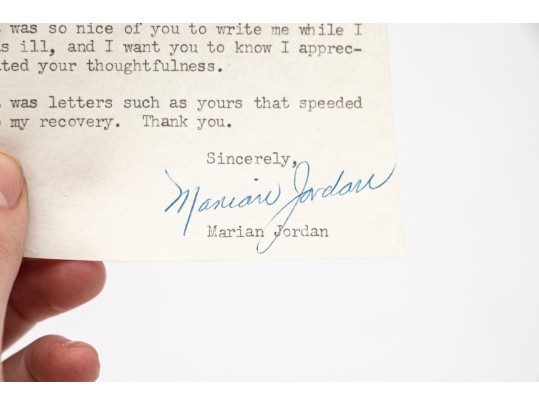 was so nice of you to write me while I
s ill, and I want you to know I apprec-
ated your thoughtfulness.
was letters such as yours that speeded
my recovery. Thank you.
Sincerely,
Marian Jordan
Marian Jordan